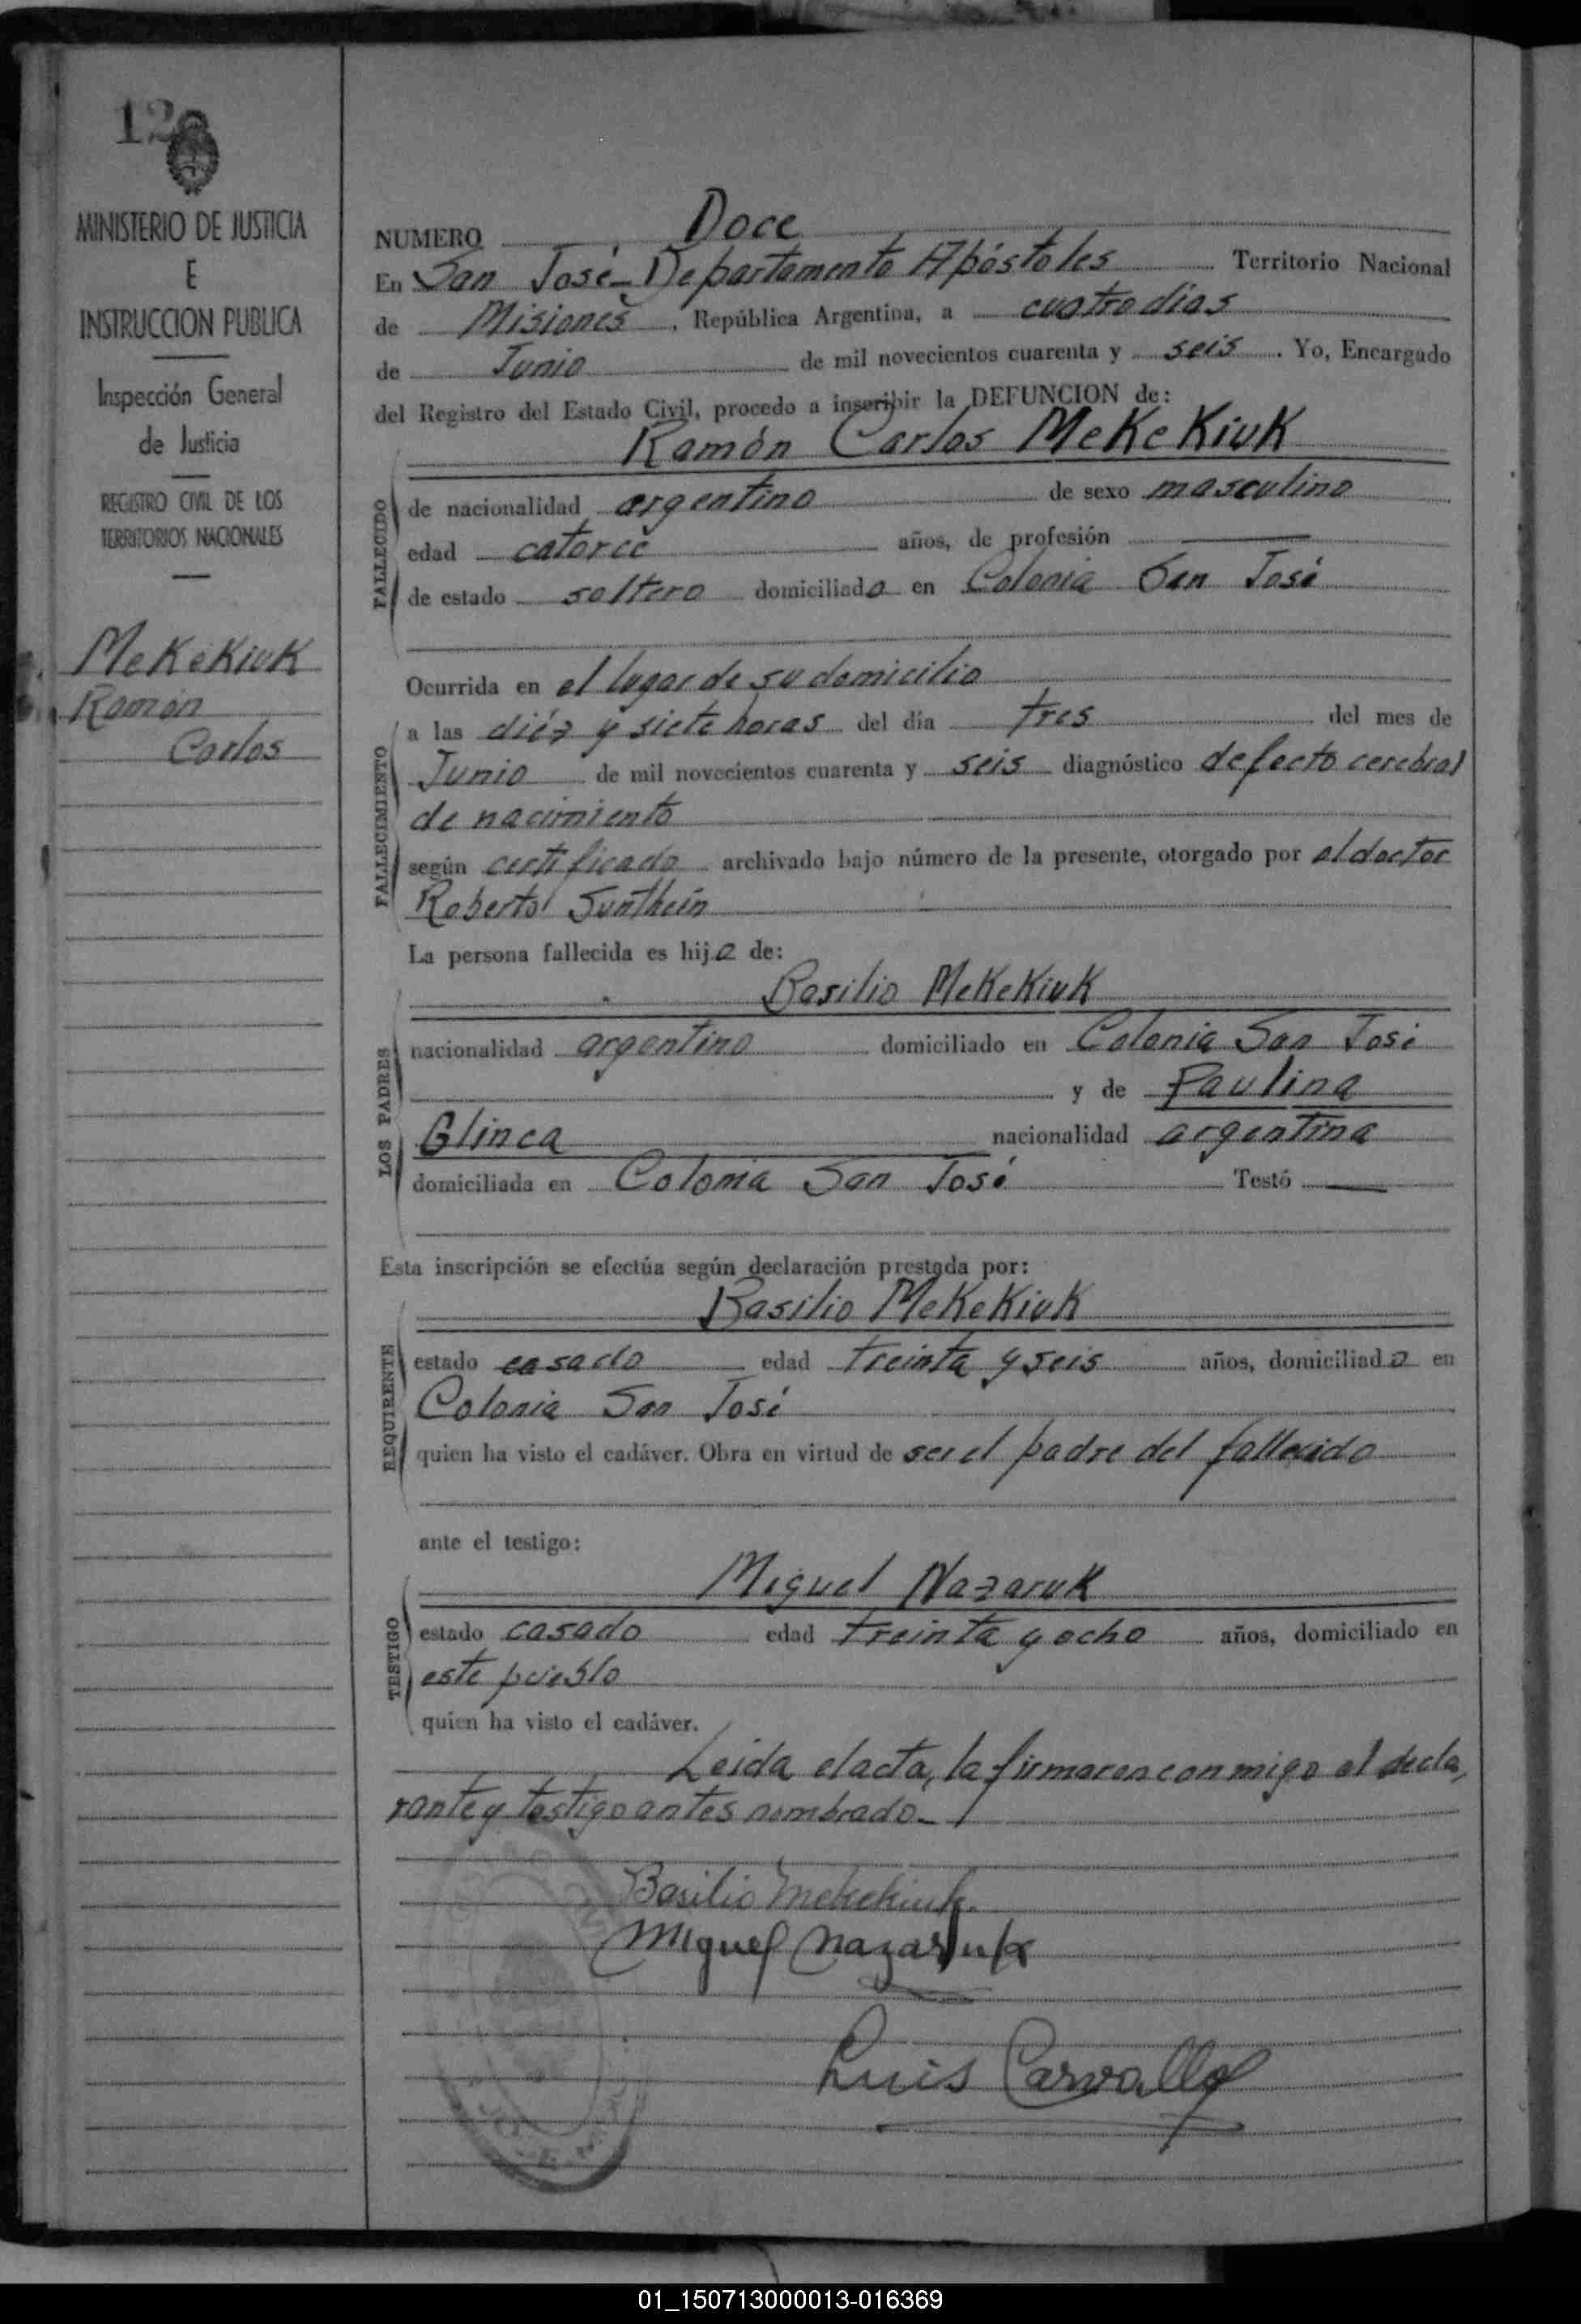 12
MINISTERIO DE JUSTICIA
E
INSTRUCCION PUBLICA
Inspección General
de Justicia
REGISTRO CIVIL DE LOS
TERRITORIOS NACIONALES
MeKeKiuK
Ramón
Carlos
NUMERO Doce
En San José - Departamento Apóstoles Territorio Nacional
de Misiones, República Argentina, a cuatro dias
de Junio de mil novecientos cuarenta y seis. Yo, Encargado
del Registro del Estado Civil, procedo a inscribir la DEFUNCION de:
Ramón Carlos MeKeKiuK
FALLECIDO
de nacionalidad argentino de sexo masculino
edad catorce años, de profesión —
de estado soltero domiciliado en Colonia San José
Ocurrida en el lugar de su domicilio
FALLECIMIENTO
a las diéz y siete horas del día tres del mes de
Junio de mil novecientos cuarenta y seis diagnóstico defecto cerebral
de nacimiento
según certificado archivado bajo número de la presente, otorgado por el doctor
Roberto Sunthein
La persona fallecida es hijo de:
LOS PADRES
Basilio MeKeKiuK
nacionalidad argentino domiciliado en Colonia San José
y de Paulina
Glinca nacionalidad argentina
domiciliada en Colonia San José Testó —
Esta inscripción se efectúa según declaración prestada por:
REQUIRENTE
Basilio MeKeKiuK
estado casado edad treinta y seis años, domiciliado en
Colonia San José
quien ha visto el cadáver. Obra en virtud de ser el padre del fallecido
ante el testigo:
TESTIGO
Miguel NazaruK
estado casado edad treinta y ocho años, domiciliado en
este pueblo
quien ha visto el cadáver.
Leida el acta, la firmaron conmigo el decla,
rante y testigo antes nombrado.-
Basilio Mekekiuk.
Miguel Nazaruk
Luis Carvallo
01_150713000013-016369